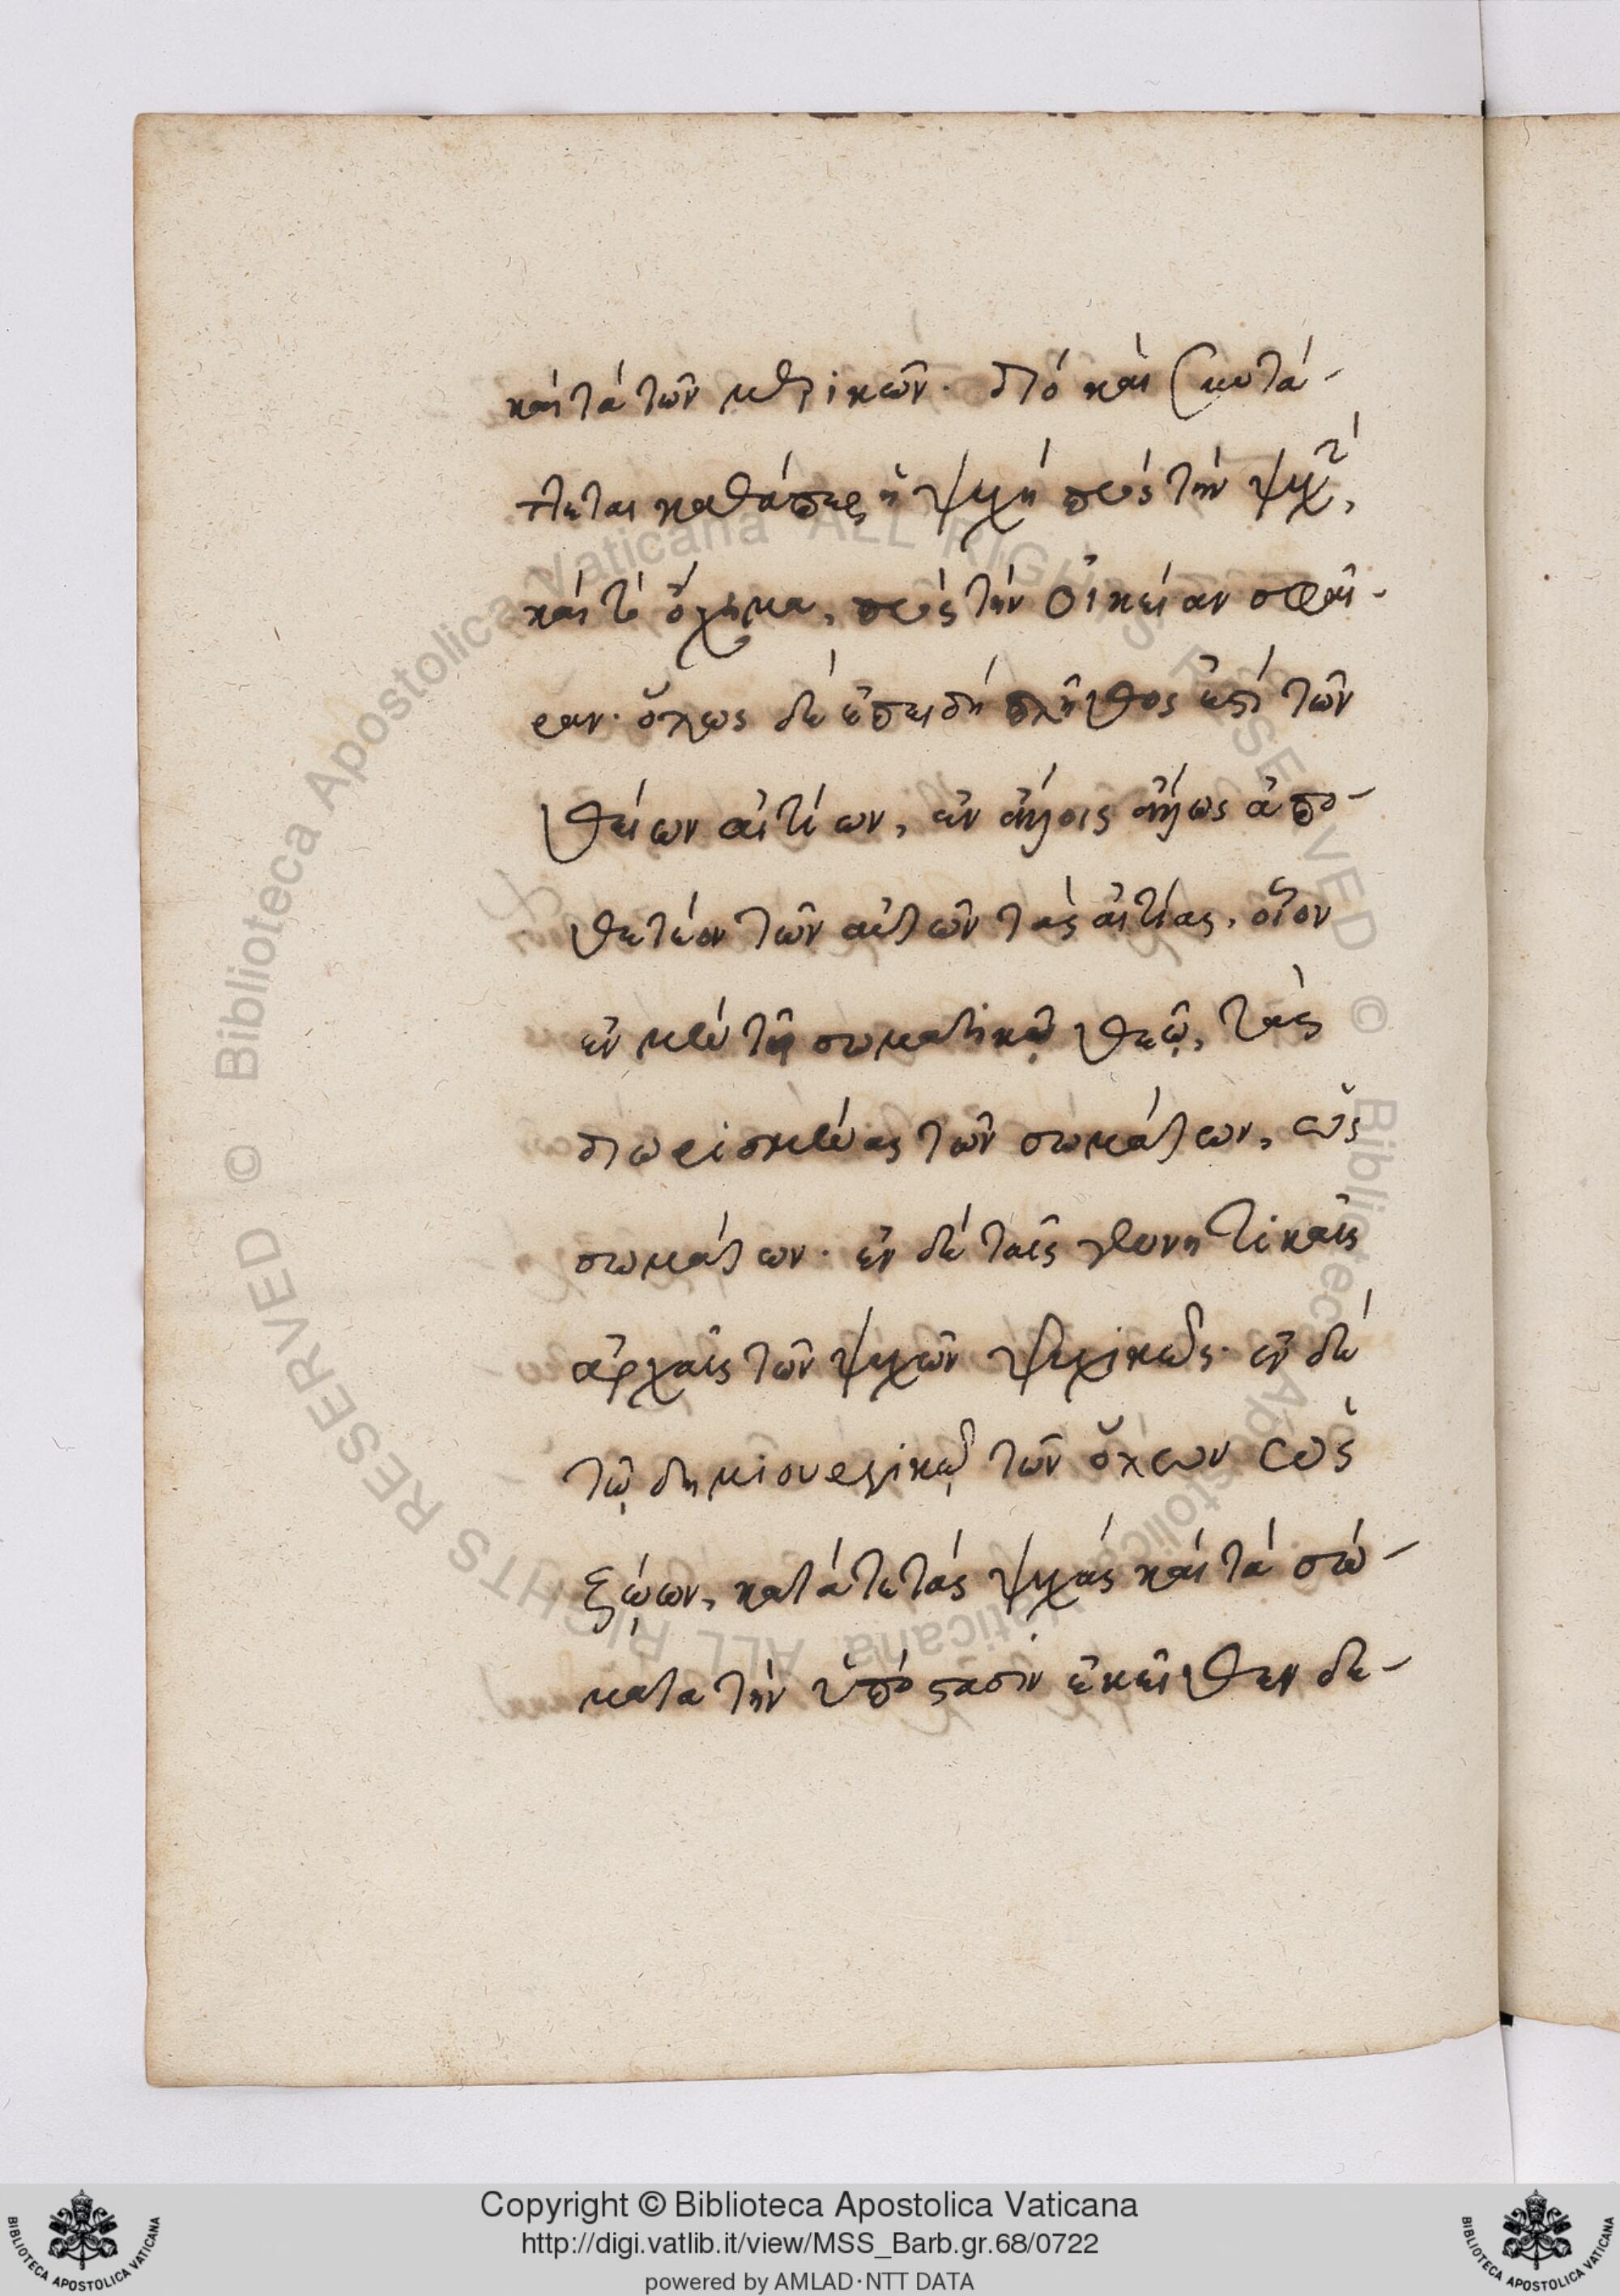 καὶ τὰ τῶν μερικῶν· διὸ καὶ συντά-
ττεται καθάπερ ἡ ψυχὴ πρὸς τὴν ψυχὴν,
καὶ τὸ ὄχημα, πρὸς τὴν οἰκείαν σφαῖ-
ραν· ὅλως δὲ ἐπειδὴ πλῆθος ἐστὶ τῶν
θείων αἰτίων, ἐν ἄλλοις ἄλλως ἀπο-
θετέον τῶν αὐτῶν τὰς αἰτίας, οἷον
ἐν μὲν τῷ σωματικῷ θεῷ, τὰς
διωρισμένας τῶν σωμάτων, ὡς
σωμάτων· ἐν δὲ ταῖς γεννητικαῖς
ἀρχαῖς τῶν ψυχῶν ψυχικῶς· ἐν δὲ
τῷ δημιουργικῷ τῶν ὅλων ὡς
ζῴων, κατά τε τὰς ψυχὰς καὶ τὰ σώ-
ματα τὴν ὑπόστασιν ἐκεῖθεν δε-
© Biblioteca Apostolica Vaticana ALL RIGHTS RESERVED © Biblioteca Apostolica Vaticana ALL RIGHTS RESERVED
Copyright © Biblioteca Apostolica Vaticana
http://digi.vatlib.it/view/MSS_Barb.gr.68/0722
powered by AMLAD·NTT DATA
BIBLIOTECA APOSTOLICA VATICANA
BIBLIOTECA APOSTOLICA VATICANA